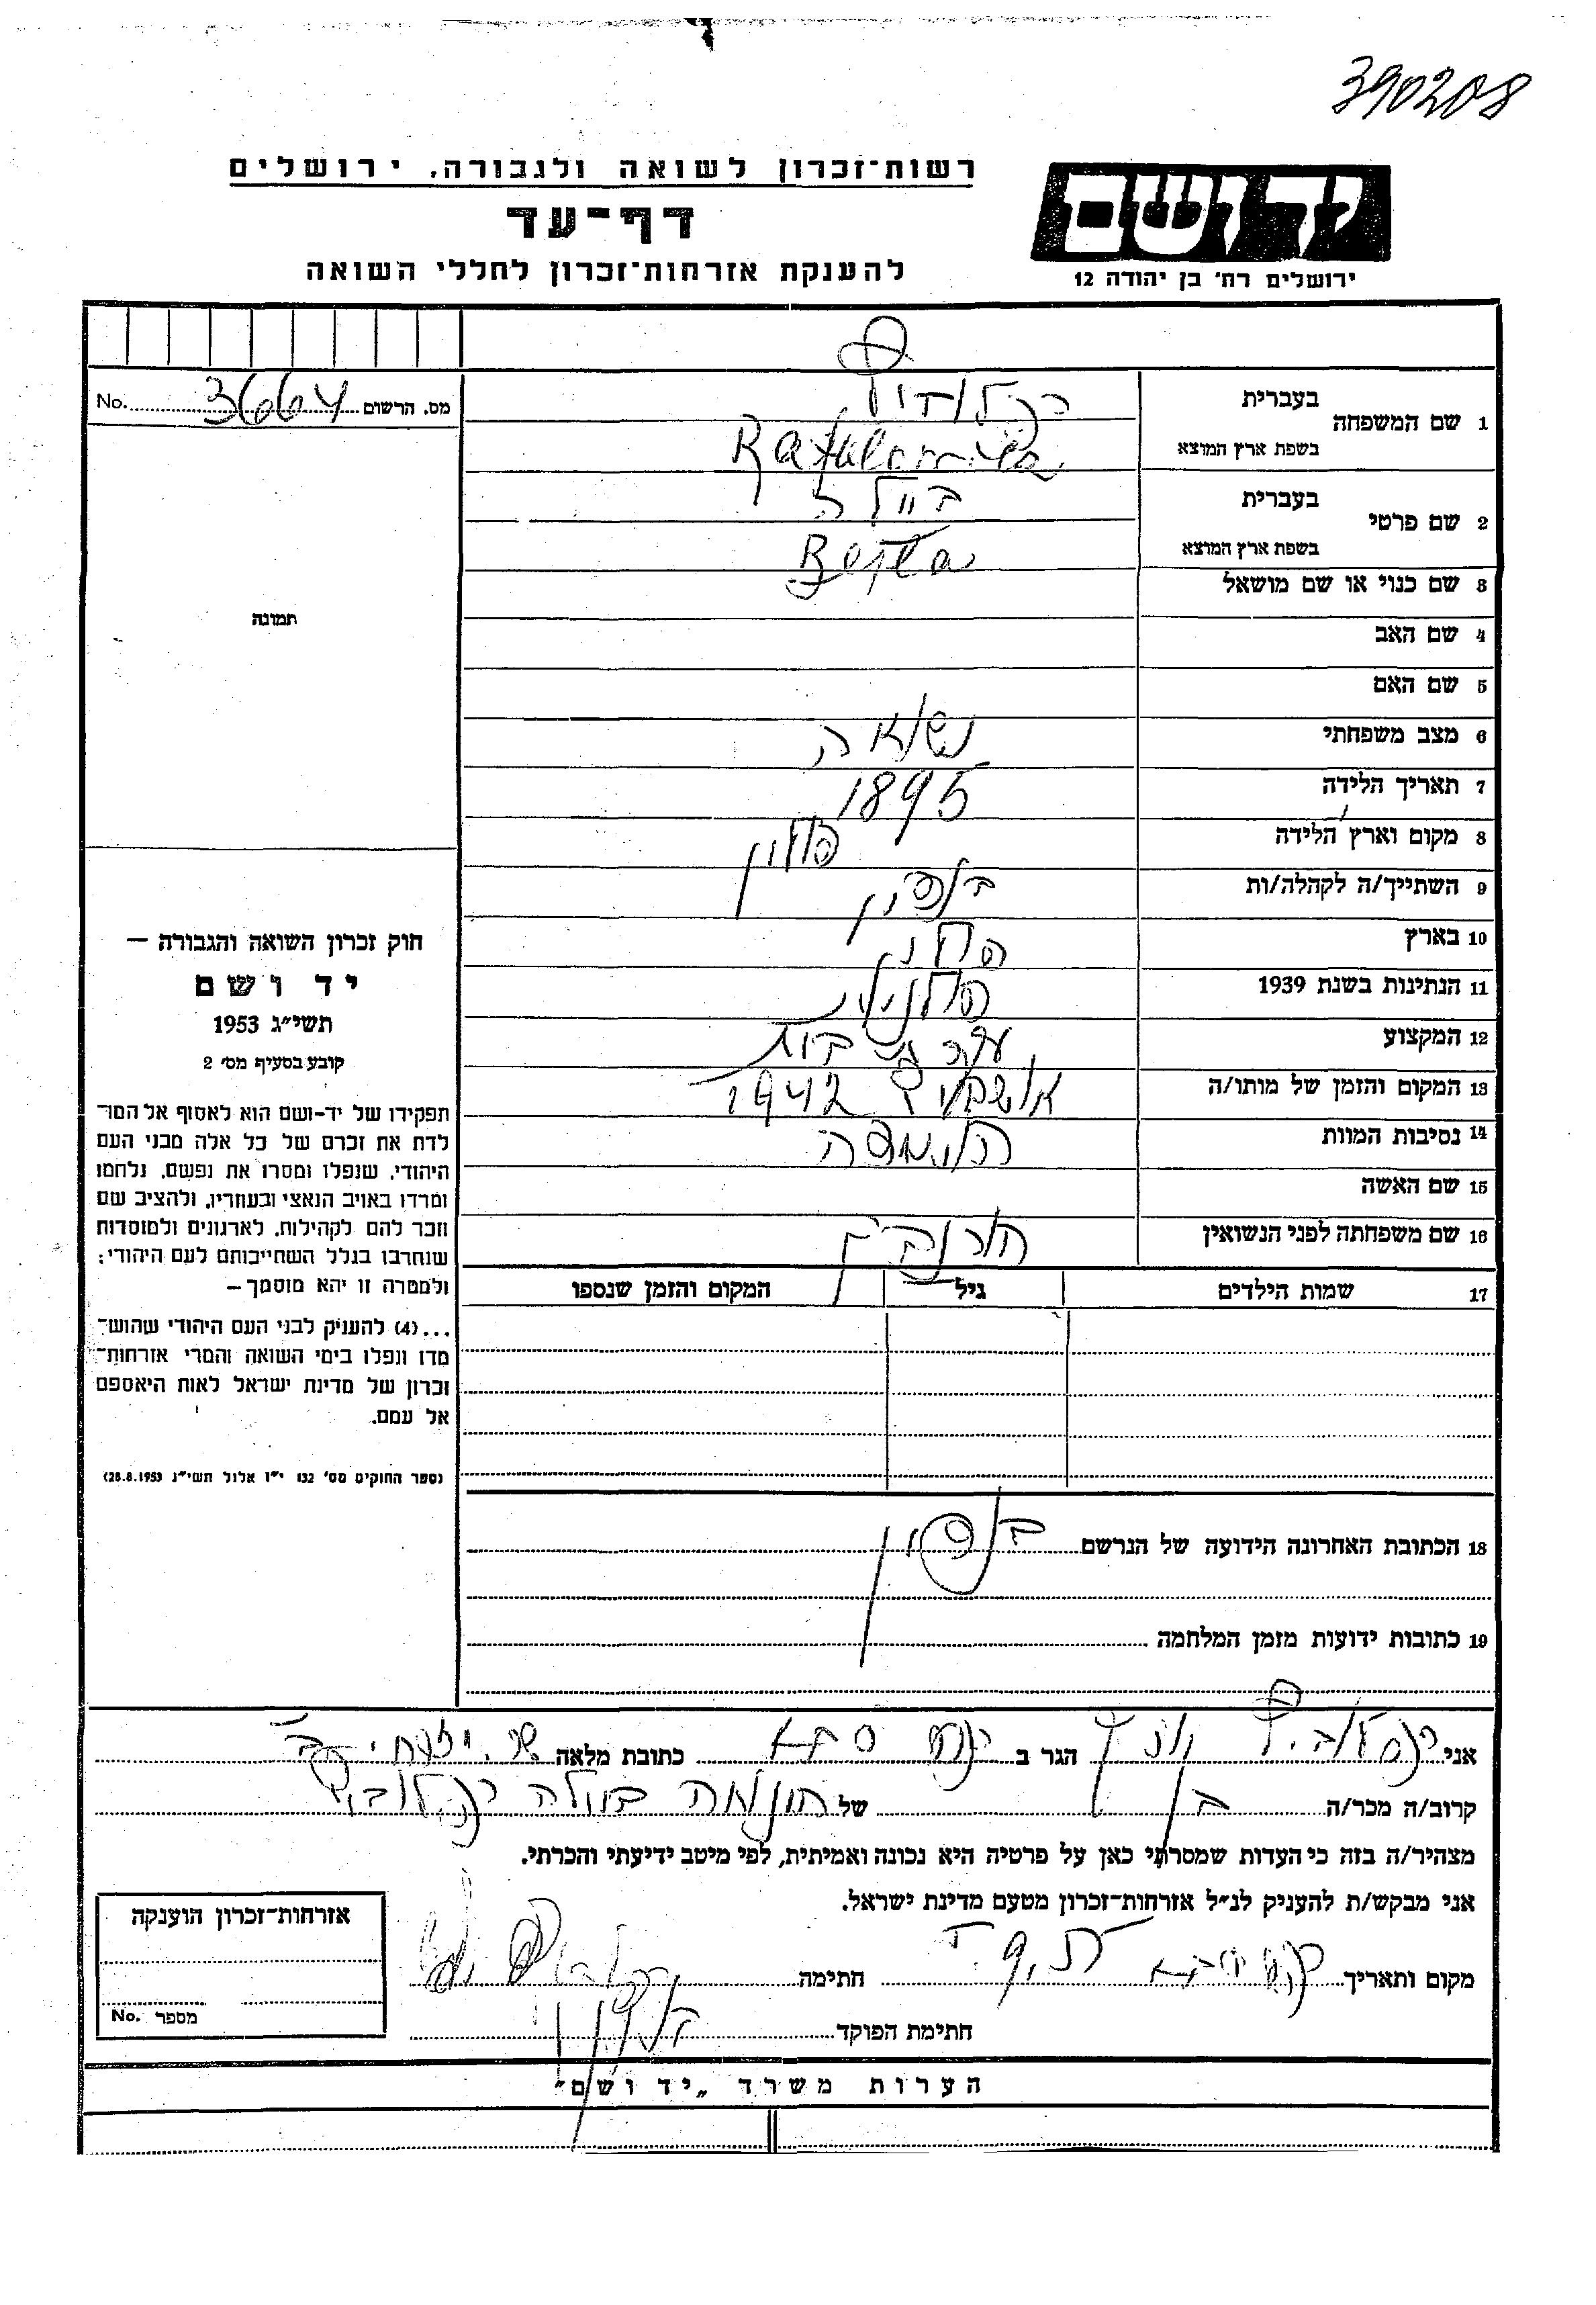 390208
רשות־זכרון לשואה ולגבורה, ירושלים
יד ושם
דף־עד
ירושלים רח' בן יהודה 12
להענקת אזרחות־זכרון לחללי השואה
מס. הרשום 3664 No.
1 שם המשפחה
בעברית
בשפת ארץ המוצא
2 שם פרטי
בעברית ביילה
בשפת ארץ המוצא Bejla
3 שם כנוי או שם מושאל
תמונה
4 שם האב
5 שם האם
6 מצב משפחתי נשואה
7 תאריך הלידה 1895
8 מקום וארץ הלידה פולין
9 השתייך/ה לקהלה/ות בנדין
10 בארץ פולין
11 הנתינות בשנת 1939 פולנית
12 המקצוע עקרת בית
13 המקום והזמן של מותו/ה אושביץ 1942
14 נסיבות המוות
15 שם האשה
16 שם משפחתה לפני הנשואין
17 שמות הילדים גיל המקום והזמן שנספו
חוק זכרון השואה והגבורה —
יד ושם
תשי"ג 1953
קובע בסעיף מס' 2
תפקידו של יד-ושם הוא לאסוף אל המו־
לדת את זכרם של כל אלה מבני העם
היהודי, שנפלו ומסרו את נפשם, נלחמו
ומרדו באויב הנאצי ובעוזריו, ולהציב שם
וזכר להם לקהילות, לארגונים ולמוסדות
שנחרבו בגלל השתייכותם לעם היהודי;
ולמטרה זו יהא מוסמך —
...(4) להעניק לבני העם היהודי שהוש־
מדו ונפלו בימי השואה והמרי אזרחות־
זכרון של מדינת ישראל לאות היאספם
אל עמם.
(ספר החוקים מס' 132 י"ז אלול תשי"ג 28.8.1953)
18 הכתובת האחרונה הידועה של הנרשם בנדין
19 כתובות ידועות מזמן המלחמה
אני הגר ב כפר סבא כתובת מלאה
קרוב/ה מכר/ה בן של
מצהיר/ה בזה כי העדות שמסרתי כאן על פרטיה היא נכונה ואמיתית, לפי מיטב ידיעתי והכרתי.
אני מבקש/ת להעניק לנ"ל אזרחות־זכרון מטעם מדינת ישראל.
מקום ותאריך כפר סבא חתימה
חתימת הפוקד
אזרחות־זכרון הוענקה
מספר No.
הערות משרד „יד ושם"